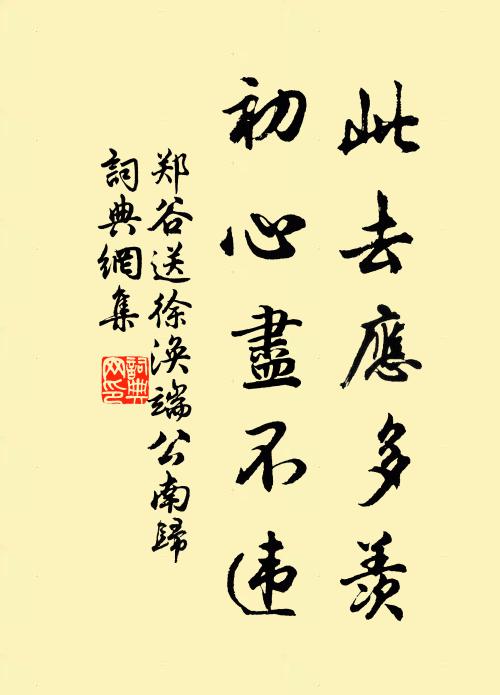 此去應多羨
初心盡不违
郑谷送徐涣端公南歸
詞典網集
詞典网印